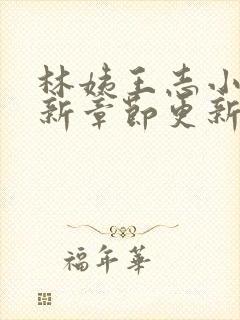 林姨王志小
新章节更新
福年華